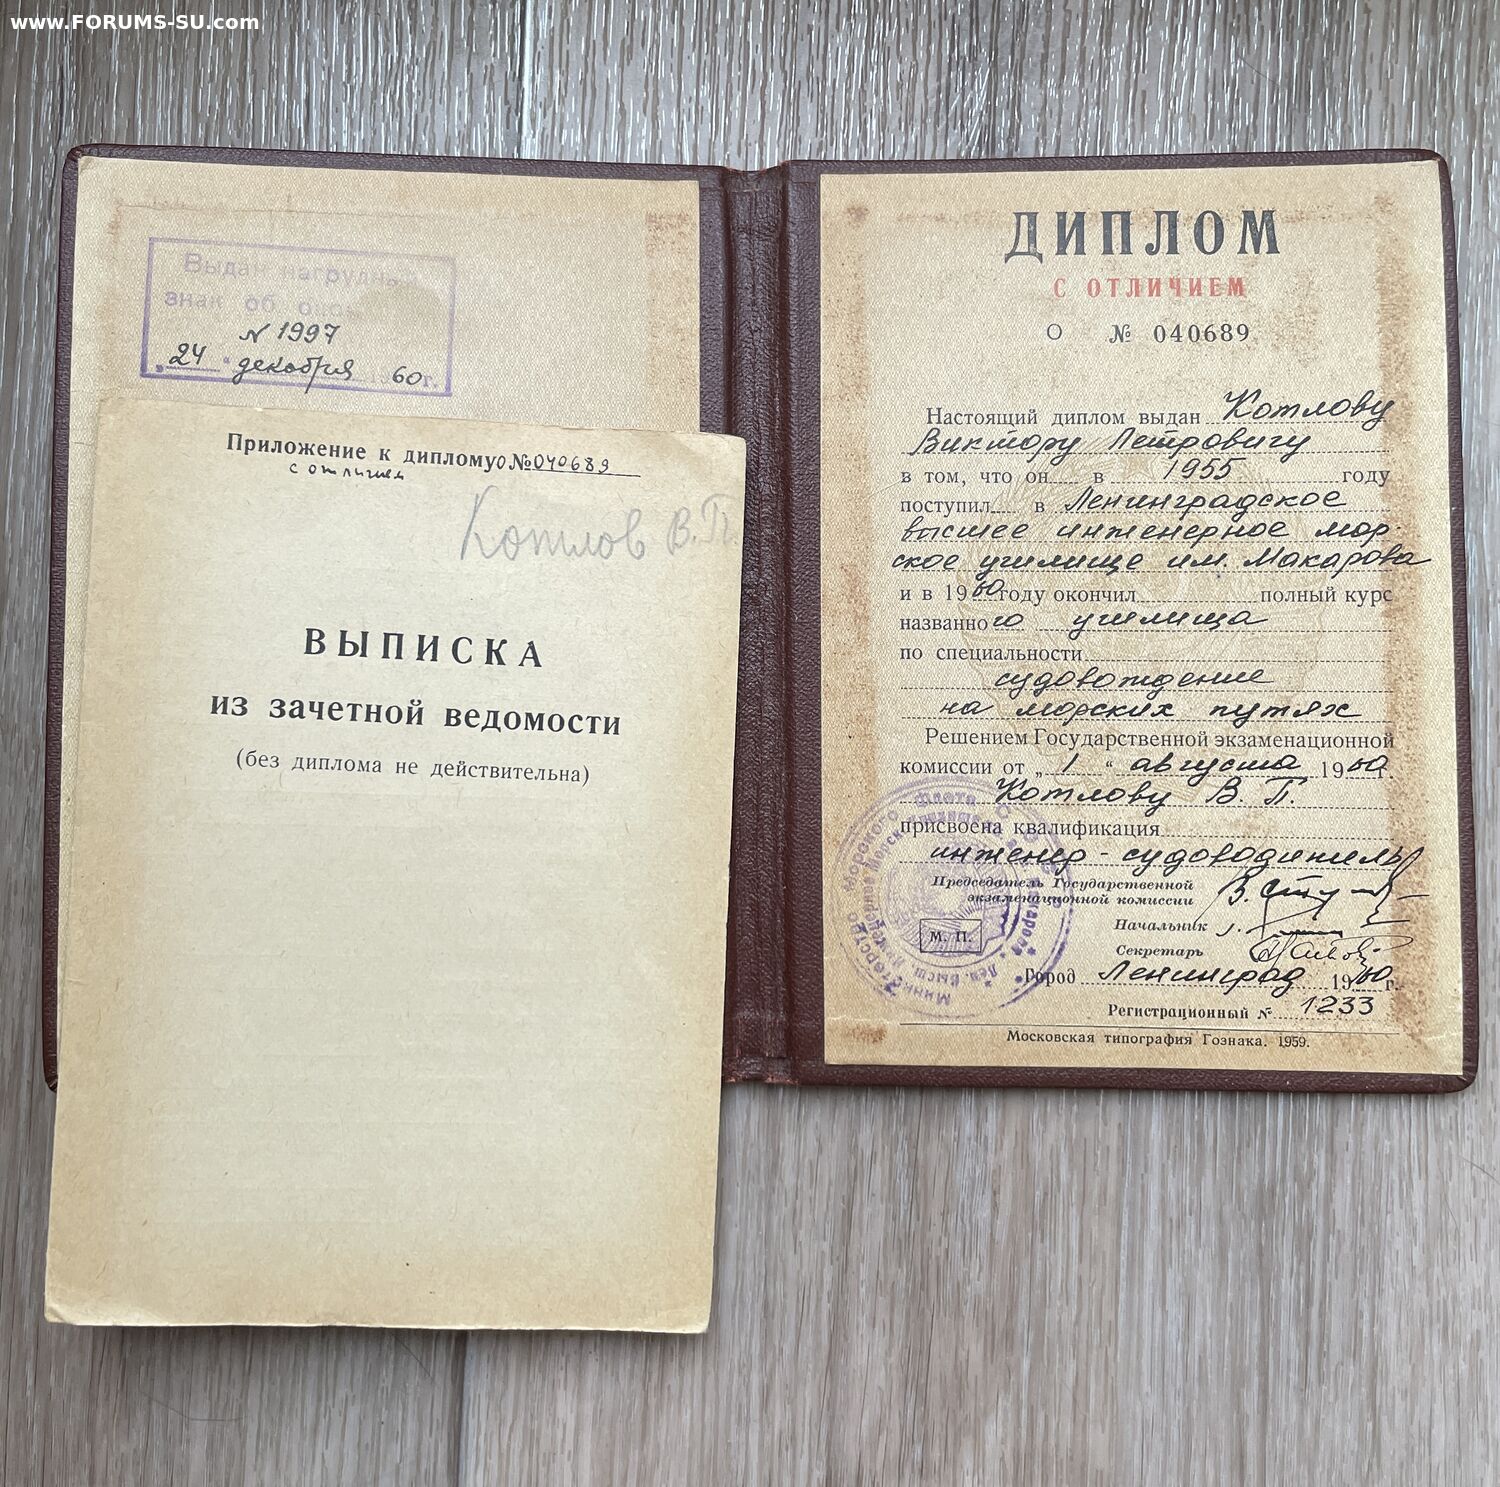 www.FORUMS-SU.com
Выдан нагрудный
знак об
N 1997
„24“ декабря 1960г.
Приложение к дипломуО№040689
с отличием
Котлов В.П.
ВЫПИСКА
из зачетной ведомости
(без диплома не действительна)
ДИПЛОМ
С ОТЛИЧИЕМ
О № 040689
Настоящий диплом выдан Котлову
Виктору Петровичу
в том, что он в 1955 году
поступил в Ленинградское
высшее инженерное мор-
ское училище им. Макарова
и в 1960 году окончил полный курс
названного училища
по специальности
судовождение
на морских путях
Решением Государственной экзаменационной
комиссии от „1“ августа 1960 г.
Котлову В. П.
присвоена квалификация
инженер-судоводитель
Председатель Государственной
экзаменационной комиссии
Начальник
Секретарь
М. П.
Город Ленинград 1960 г.
Регистрационный № 1233
Московская типография Гознака. 1959.
Министерство Морского Флота